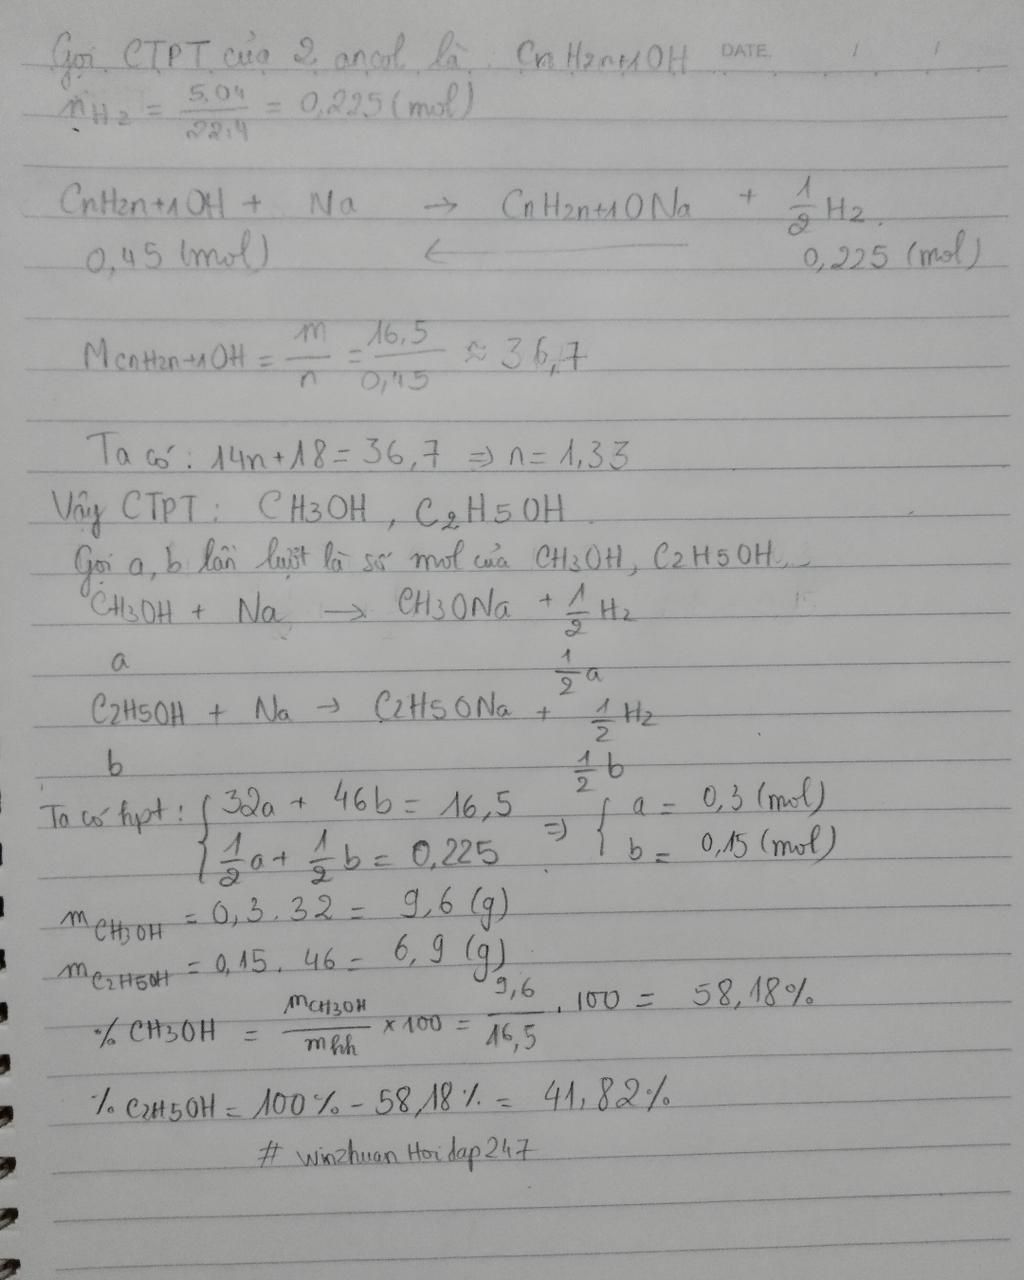 Gọi CTPT của 2 ancol là: CnH2n+1OH DATE / /
nH2 = 5,04/22,4 = 0,225 (mol)
CnH2n+1OH + Na → CnH2n+1ONa + 1/2 H2.
0,45 (mol) ← 0,225 (mol)
MCnH2n+1OH = m/n = 16,5/0,45 ≈ 36,7
Ta có: 14n+18 = 36,7 ⇒ n = 1,33
Vậy CTPT: CH3OH, C2H5OH.
Gọi a, b lần lượt là số mol của CH3OH, C2H5OH.
CH3OH + Na → CH3ONa + 1/2 H2
a 1/2 a
C2H5OH + Na → C2H5ONa + 1/2 H2
b 1/2 b
Ta có hpt: { 32a + 46b = 16,5 ⇒ { a = 0,3 (mol)
1/2 a + 1/2 b = 0,225 b = 0,15 (mol)
mCH3OH = 0,3.32 = 9,6 (g)
mC2H5OH = 0,15.46 = 6,9 (g)
% CH3OH = mCH3OH/mhh × 100 = 9,6/16,5 . 100 = 58,18%
% C2H5OH = 100% - 58,18% = 41,82%
# winzhuan Hoidap247